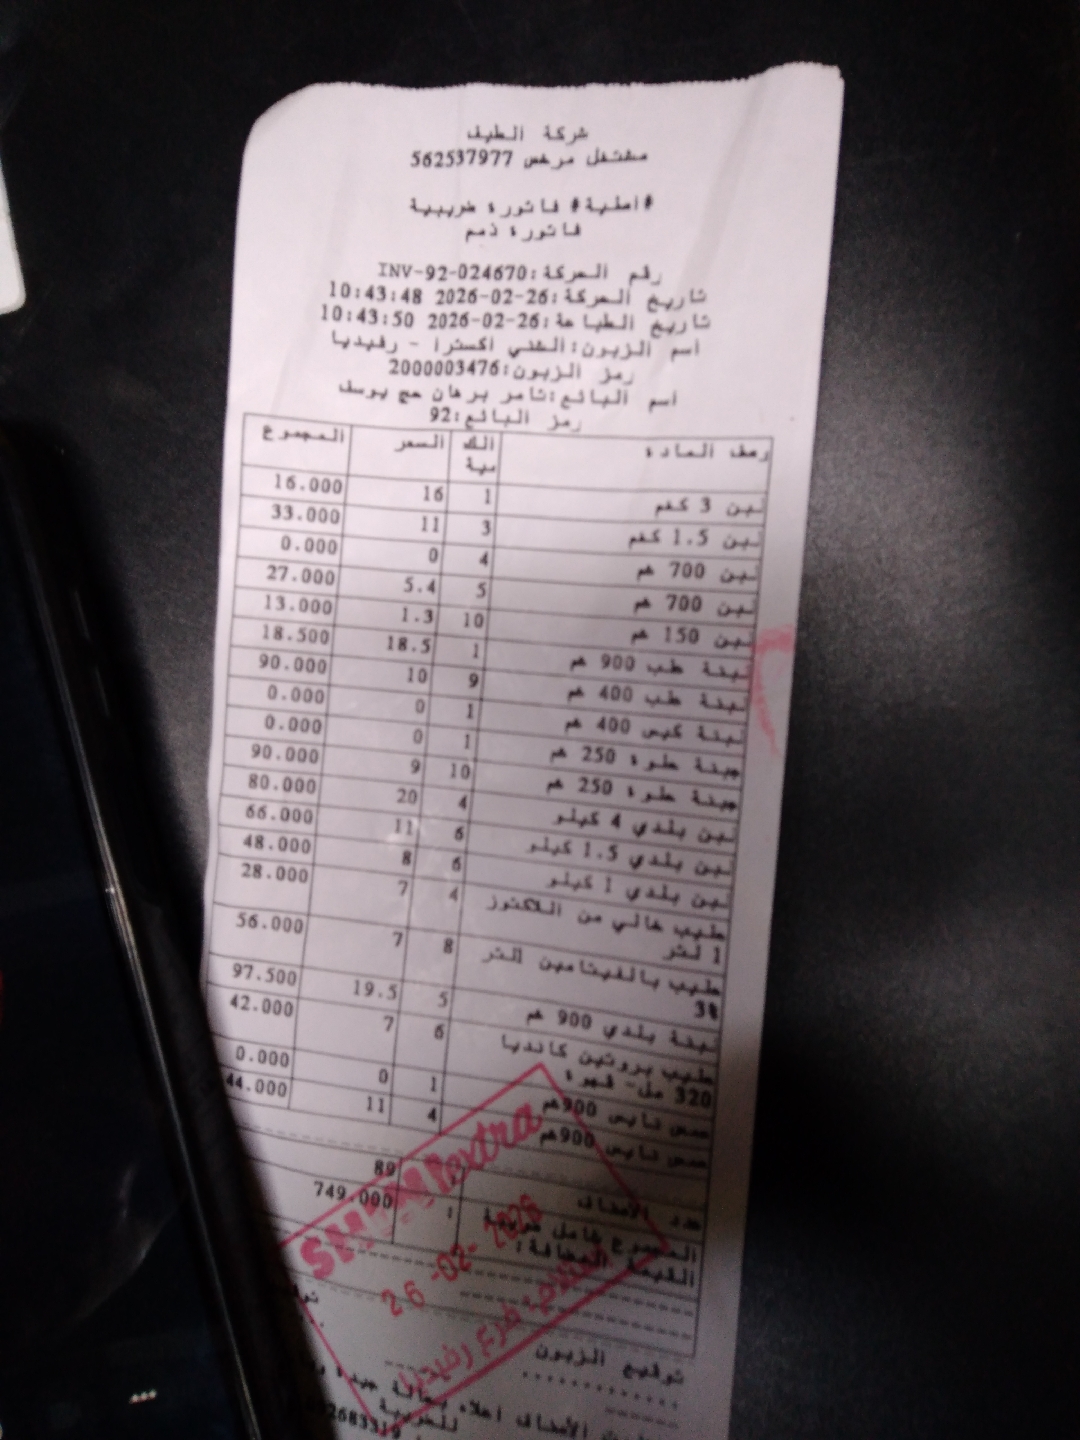 شركة الطيف
مشتغل مرخص 562537977
#اصلية# فاتورة ضريبية
فاتورة ذمم
رقم الحركة:INV-92-024670
تاريخ الحركة:26-02-2026 10:43:48
تاريخ الطباعة:26-02-2026 10:43:50
اسم الزبون:الشني اكسترا - رفيديا
رمز الزبون:2000003476
اسم البائع:تامر برهان حج يوسف
رمز البائع:92
وصف المادة الكمية السعر المجموع
لبن 3 كغم 1 16 16.000
لبن 1.5 كغم 3 11 33.000
لبن 700 غم 4 0 0.000
لبن 700 غم 5 5.4 27.000
لبن 150 غم 10 1.3 13.000
لبنة طب 900 غم 1 18.5 18.500
لبنة طب 400 غم 9 10 90.000
لبنة كيس 400 غم 1 0 0.000
جبنة حلوة 250 غم 1 0 0.000
جبنة حلوة 250 غم 10 9 90.000
لبن بلدي 4 كيلو 4 20 80.000
لبن بلدي 1.5 كيلو 6 11 66.000
لبن بلدي 1 كيلو 6 8 48.000
حليب خالي من اللاكتوز 1 لتر 4 7 28.000
حليب بالفيتامين 1لتر 3% 8 7 56.000
لبنة بلدي 900 غم 5 19.5 97.500
حليب بروتين كانديا 320 مل- قهوة 6 7 42.000
حمص نايس 900غم 1 0 0.000
حمص نايس 900غم 4 11 44.000
عدد الأصناف : 89
المجموع شامل ضريبة القيمة المضافة: : 749.000
extra
26-02-2026
فرع رفيديا
توقيع الزبون
الأصناف اعلاه بحالة جيدة